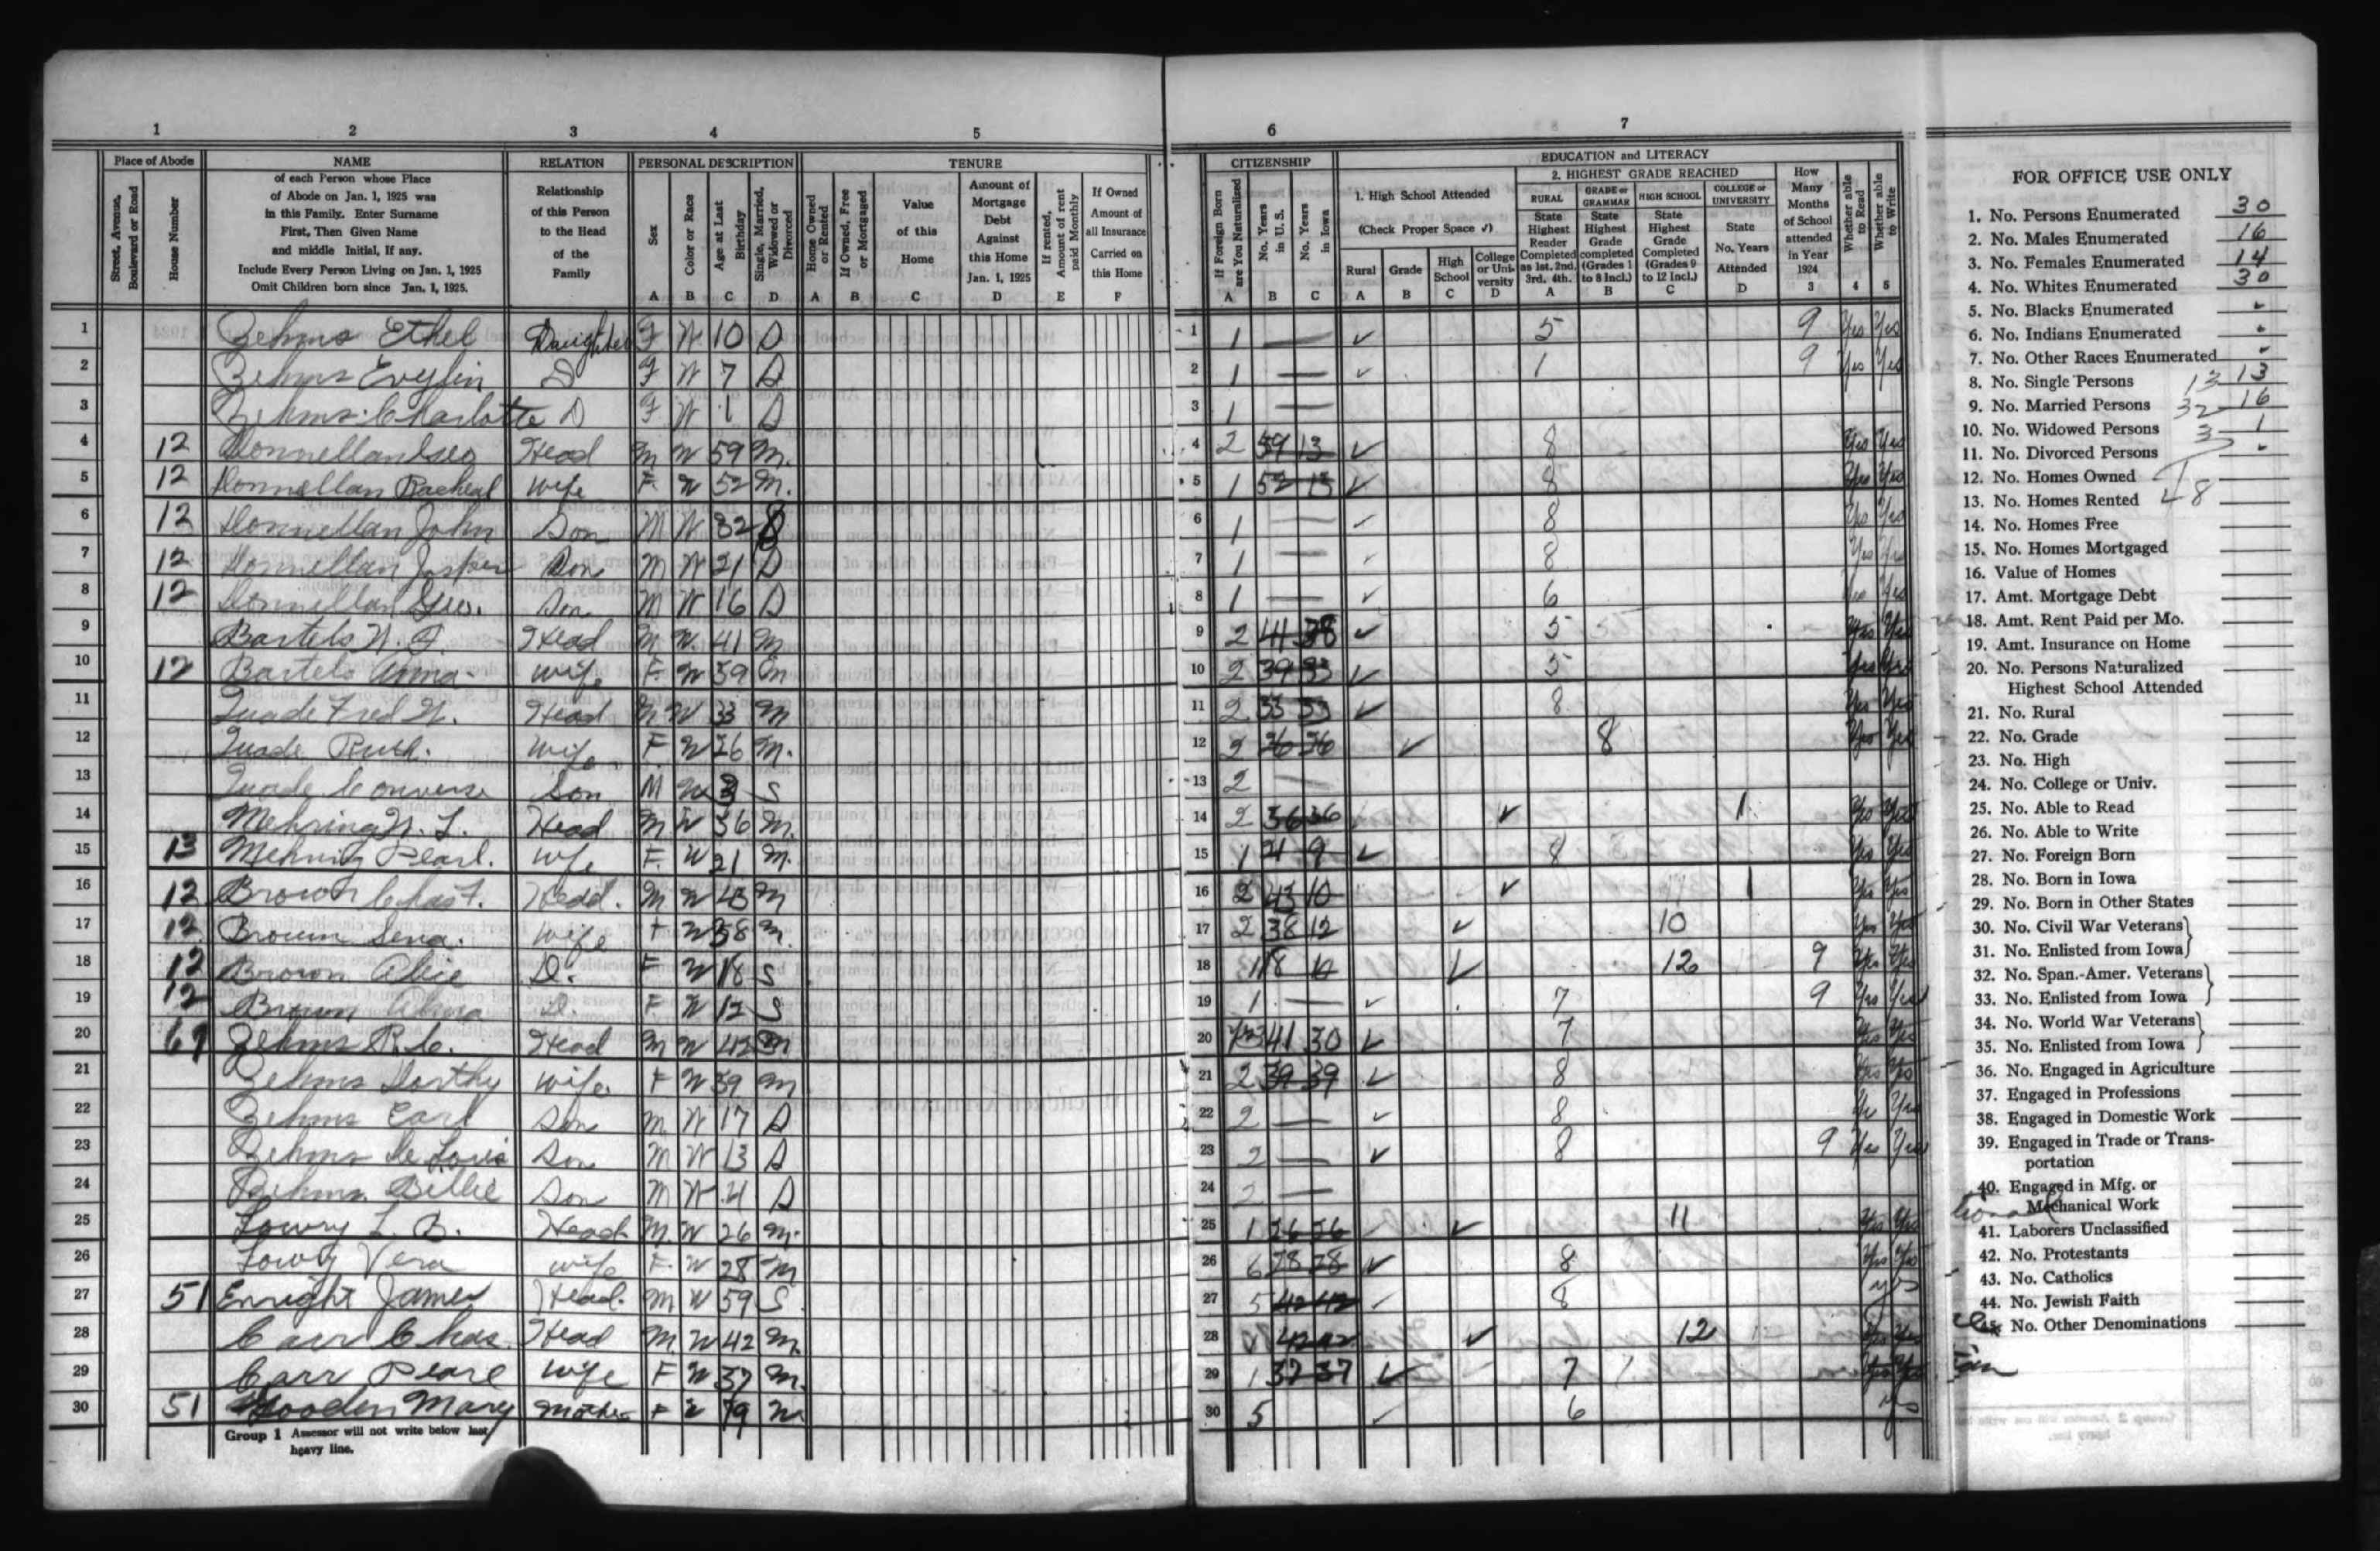 1 2 3 4 5
Place of Abode NAME RELATION PERSONAL DESCRIPTION TENURE
Street, Avenue, Boulevard or Road
House Number
of each Person whose Place
of Abode on Jan. 1, 1925 was
in this Family. Enter Surname
First, Then Given Name
and middle Initial, If any.
Include Every Person Living on Jan. 1, 1925
Omit Children born since Jan. 1, 1925.
Relationship
of this Person
to the Head
of the
Family
Sex A
Color or Race B
Age at Last Birthday C
Single, Married, Widowed or Divorced D
Home Owned or Rented A
If Owned, Free or Mortgaged B
Value of this Home C
Amount of Mortgage Debt Against this Home Jan. 1, 1925 D
If rented, Amount of rent paid Monthly E
If Owned Amount of all Insurance Carried on this Home F
1 Zehms Ethel Daughter F W 10 S
2 Zehms Evylin D F W 7 S
3 Zehms Charlotte D F W 1 S
4 12 Donnellan Head M W 59 M.
5 12 Donnellan Racheal wife F. W 52 M.
6 12 Donnellan John Son M W 32 S
7 12 Donnellan Son M W 21 S
8 12 Donnellan Geo. Son M W 16 S
9 Bartels Head M W 41 M
10 12 Bartels Anna wife F. W 39 M
11 Quade Fred W. Head M W 33 M
12 Quade Ruth. Wife F. W 26 M.
13 Quade Converse Son M W 3 S
14 Mehring W. L. Head M W 36 M.
15 13 Mehring Pearl. wife F. W 21 M.
16 12 Brown Chas F. Head. M W 43 M
17 12 Brown Sena. wife F W 38 M.
18 12 Brown Alice D. F W 18 S
19 12 Brown Alma D. F W 12 S
20 61 Zehms R. C. Head M W 42 M
21 Zehms Dorthy wife F W 39 M
22 Zehms Earl Son M W 17 S
23 Zehms De Louis Son M W 13 S
24 Zehms Billie Son M W 4 S
25 Lowry L. B. Head M. W 26 M.
26 Lowry Vera wife F. W 28 M
27 51 Enright James Head. M W 59 S.
28 Carr Chas. Head M. W 42 M.
29 Carr Pearl wife F W 37 M.
30 51 Wooden Mary Mother F W 79
Group 1 Assessor will not write below last
heavy line.
6 7
CITIZENSHIP EDUCATION and LITERACY
If Foreign Born are You Naturalized A
No. Years in U. S. B
No. Years in Iowa C
1. High School Attended
(Check Proper Space √)
Rural A
Grade B
High School C
College or University D
2. HIGHEST GRADE REACHED
RURAL State Highest Reader Completed as 1st. 2nd. 3rd. 4th. A
GRADE or GRAMMAR State Highest Grade completed (Grades 1 to 8 Incl.) B
HIGH SCHOOL State Highest Grade Completed (Grades 9 to 12 Incl.) C
COLLEGE or UNIVERSITY State No. Years Attended D
How Many Months of School attended in Year 1924 3
Whether able to Read 4
Whether able to Write 5
1 1 — ✓ 5 9 Yes Yes
2 1 — ✓ 1 9 Yes Yes
3 1 —
4 2 59 13 ✓ 8 Yes Yes
5 1 52 13 ✓ 8 Yes Yes
6 1 — ✓ 8 Yes Yes
7 1 — ✓ 8 Yes Yes
8 1 — ✓ 6 Yes Yes
9 2 41 38 ✓ 5 Yes Yes
10 2 39 33 ✓ 5 Yes Yes
11 2 33 33 ✓ 8 Yes Yes
12 2 26 26 ✓ 8 Yes Yes
13 2 —
14 2 36 36 ✓ 1 Yes Yes
15 1 21 9 ✓ 8 Yes Yes
16 2 43 10 ✓ 1 Yes Yes
17 2 38 12 ✓ 10 Yes Yes
18 1 18 ✓ 12 9 Yes Yes
19 1 — ✓ 7 9 Yes Yes
20 41 30 ✓ 7 Yes Yes
21 2 39 39 ✓ 8 Yes Yes
22 2 — ✓ 8 Yes
23 2 — ✓ 8 9 Yes Yes
24 2 —
25 1 26 26 ✓ 11 Yes Yes
26 6 28 28 ✓ 8 Yes Yes
27 5 42 42 ✓ 8 yes
28 42 42 ✓ 12 Yes Yes
29 1 37 37 ✓ 7 Yes Yes
30 5 ✓ 6 yes
FOR OFFICE USE ONLY
1. No. Persons Enumerated 30
2. No. Males Enumerated 16
3. No. Females Enumerated 14
4. No. Whites Enumerated 30
5. No. Blacks Enumerated
6. No. Indians Enumerated
7. No. Other Races Enumerated
8. No. Single Persons 13 13
9. No. Married Persons 32 16
10. No. Widowed Persons 3 1
11. No. Divorced Persons
12. No. Homes Owned
13. No. Homes Rented 48
14. No. Homes Free
15. No. Homes Mortgaged
16. Value of Homes
17. Amt. Mortgage Debt
18. Amt. Rent Paid per Mo.
19. Amt. Insurance on Home
20. No. Persons Naturalized
Highest School Attended
21. No. Rural
22. No. Grade
23. No. High
24. No. College or Univ.
25. No. Able to Read
26. No. Able to Write
27. No. Foreign Born
28. No. Born in Iowa
29. No. Born in Other States
30. No. Civil War Veterans
31. No. Enlisted from Iowa
32. No. Span.-Amer. Veterans
33. No. Enlisted from Iowa
34. No. World War Veterans
35. No. Enlisted from Iowa
36. No. Engaged in Agriculture
37. Engaged in Professions
38. Engaged in Domestic Work
39. Engaged in Trade or Trans-
portation
40. Engaged in Mfg. or
Mechanical Work
41. Laborers Unclassified
42. No. Protestants
43. No. Catholics
44. No. Jewish Faith
45. No. Other Denominations